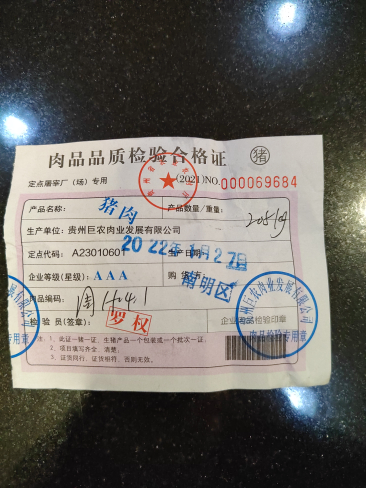 肉品品质检验合格证 猪
定点屠宰厂（场）专用 (2021)NO.000069684
产品名称： 猪肉 产品数量/重量：
生产单位：贵州巨农肉业发展有限公司
定点代码：A23010601 生产日期： 2022年1月27日
企业等级(星级)：AAA 购货方： 南明区
肉品编码：
检验员(签章)： 罗权 企业肉品检验印章
注：1、此证一猪一证，生猪产品一个包装或一个批次一证；
2、项目填写齐全、清楚；
3、证货同行、证货相符，否则无效。
州巨农肉业发展有限公司
肉品检验专用章